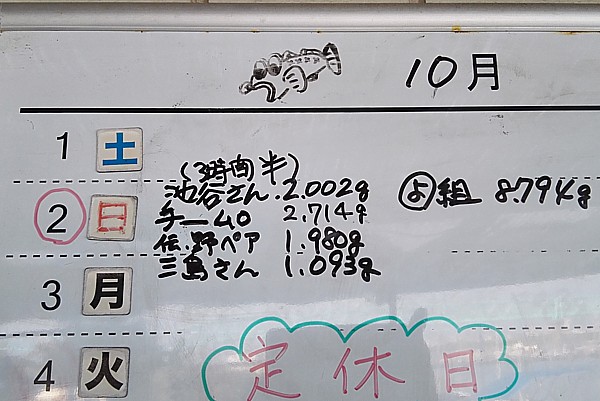 10月
1 土
(3時間半)
2 日 池谷さん. 2.002g よ組 8.794g
チームO 2.714g
伝.野ペア 1.980g
三島さん 1.093g
3 月
4 火 定休日